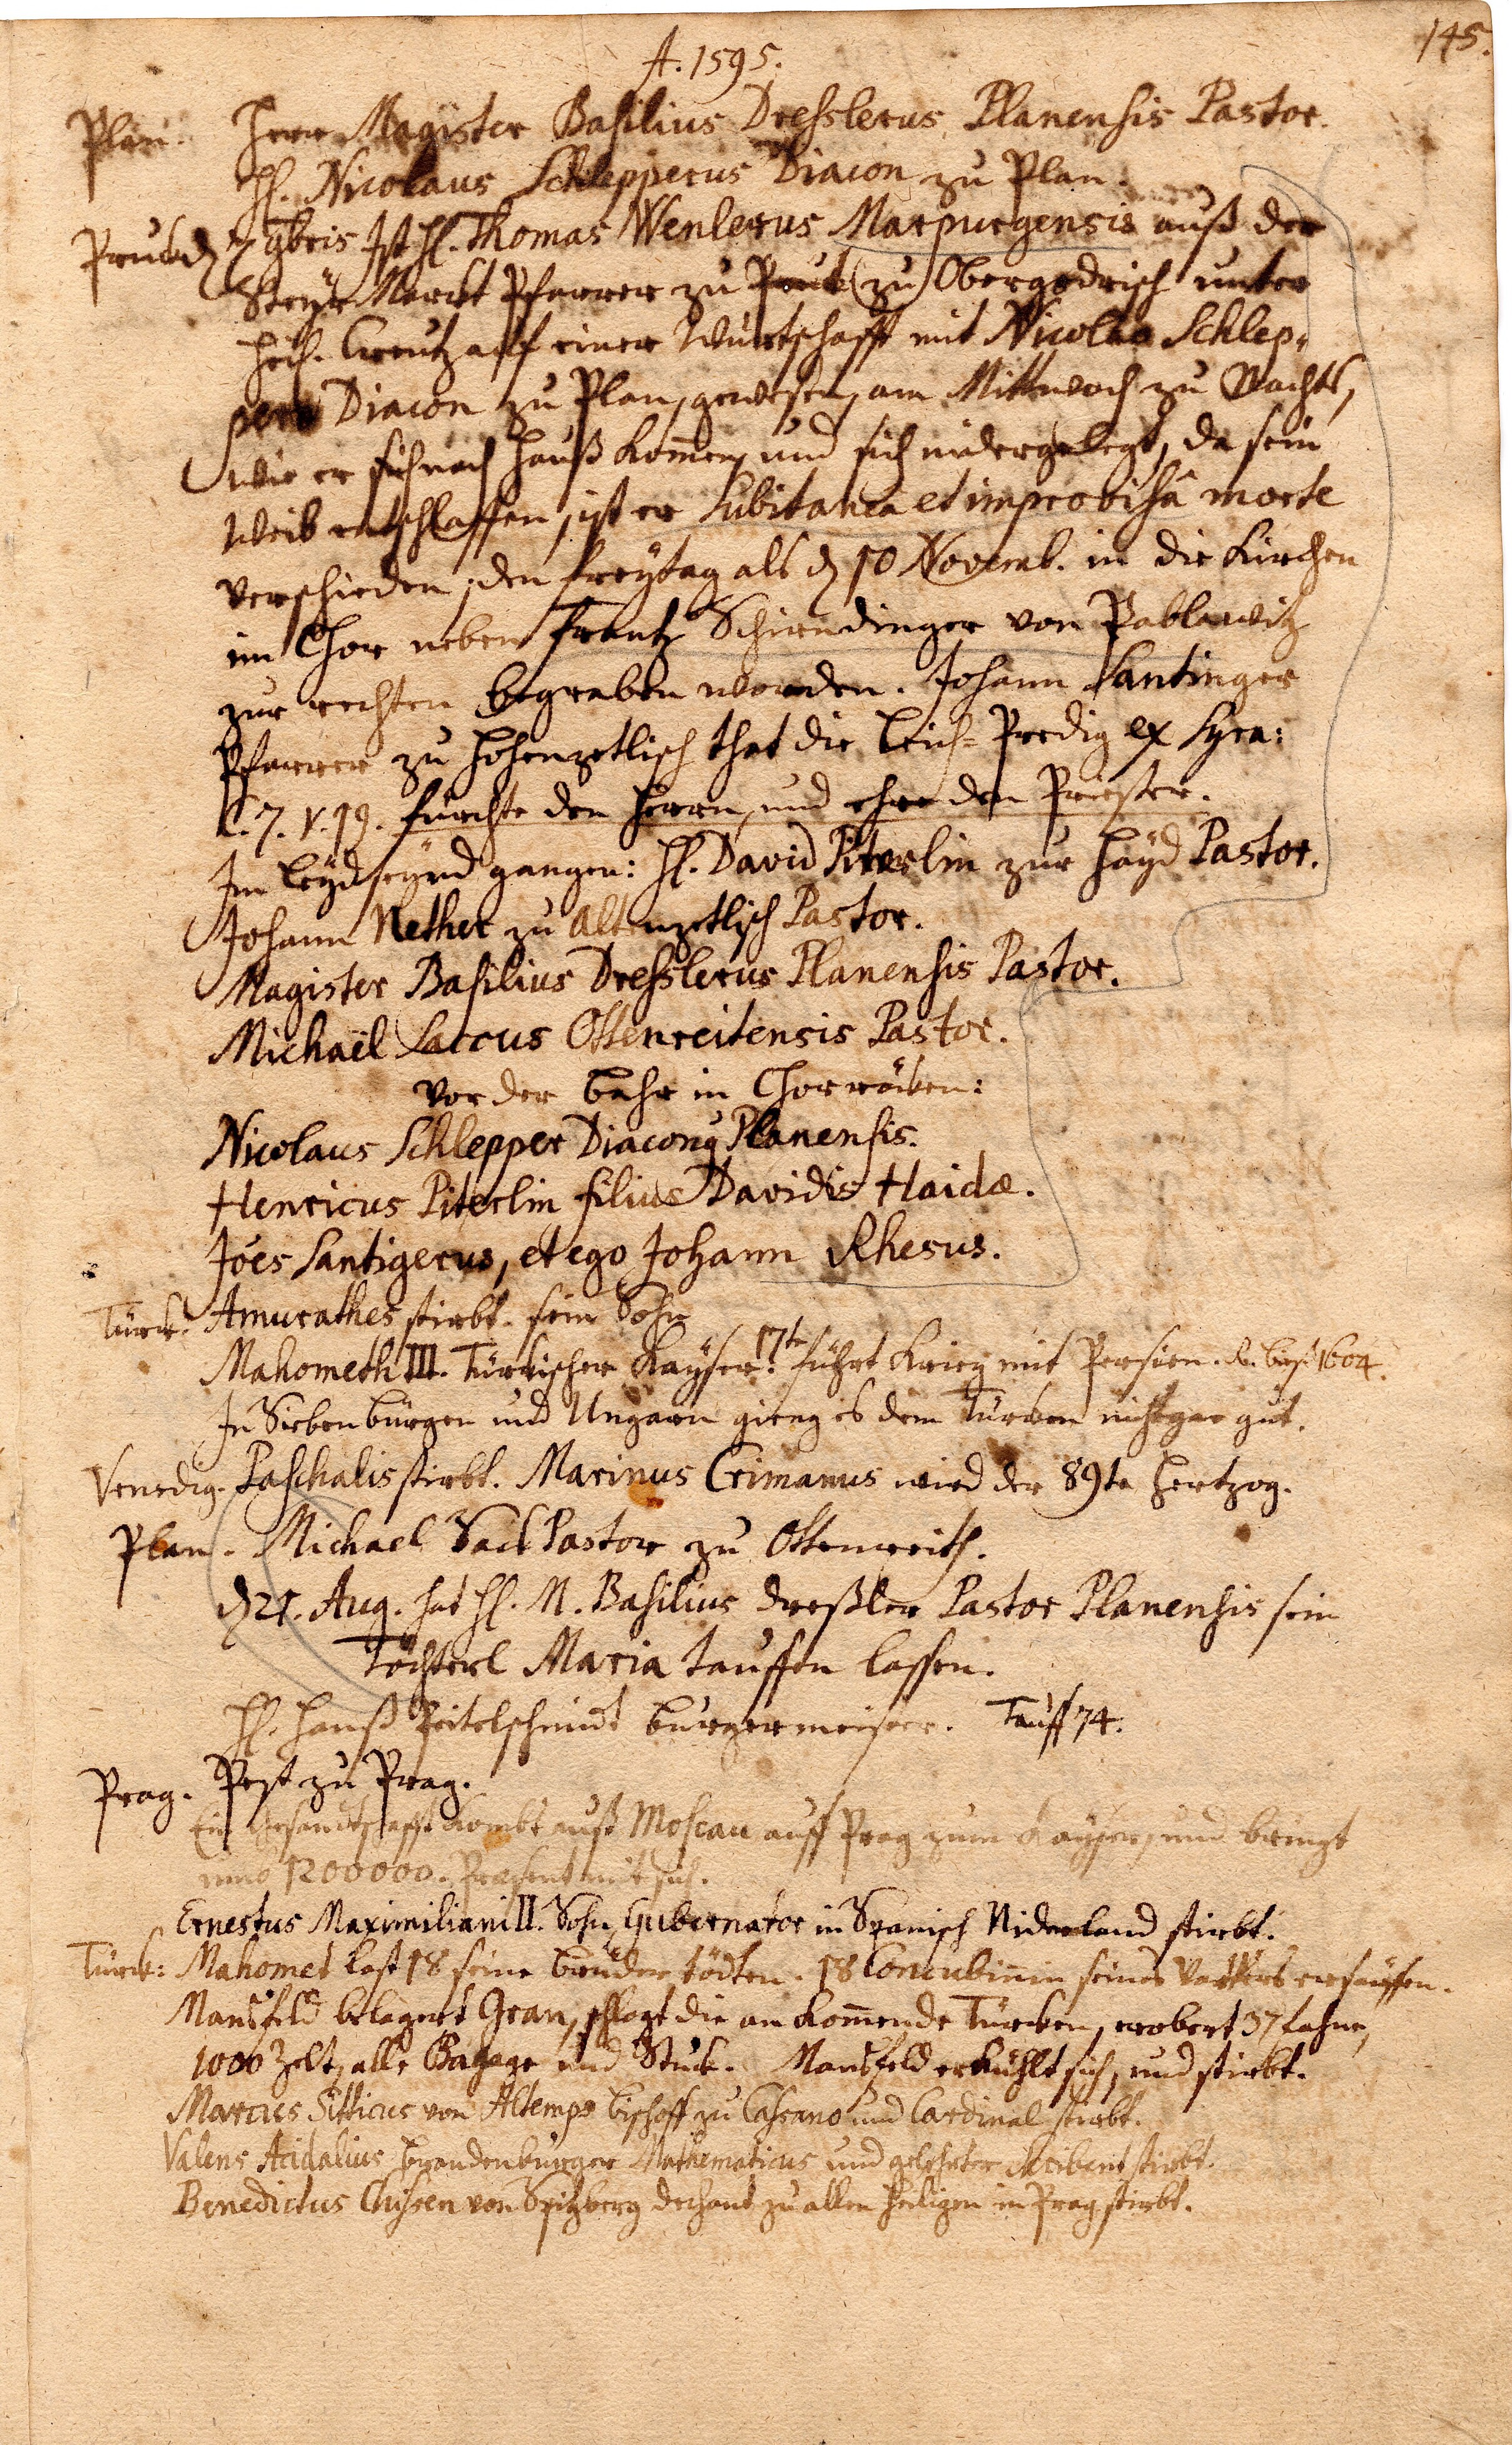 145.
A. 1595.
Plan. Herr Magister Basilius Dresslerus Planensis Pastor.
H. Nicolaus Schlepperus Diacon zu Plan.
Pruck. d 7 9bris Ist H. Thomas Wenlerus Marpurgensis auß der
Steyr Marckt Pfarrer zu Pruck (zu) Obergodrisch unter
Heil. Creutz auf einer Würtschafft mit Nicolao Schlep,
pero Diacon zu Plan, gewesen, am Mittwoch zu Nachts,
wie er sich nach Hauß kom̄en, und sich nidergelegt, da sein
Weib entschlaffen, ist er subitanea et improvisâ morte
verschieden, den freytag als d 10 Novemb. in die Kirchen
im Chor neben Frantz Schirndinger von Pablawitz
zur rechten begraben worden. Johann Santinger
Pfarrer zu Hohenzetlisch that die Leich-Predig ex Syra:
C. 7. v. 19. fürchte den Herrn, und ehre den Priester.
Im Leyd seynd gangen: H. David Piterlin zur Hayd Pastor.
Johann Nether zu Altenzetlisch Pastor.
Magister Basilius Dresslerus Planensis Pastor.
Michaël Saccus Ottenreitensis Pastor.
Vor der Bahr in Chorröcken:
Nicolaus Schlepper Diaconq Planensis.
Henricus Piterlin filius Davidis Haidæ.
Jões Santigerus, et ego Johann Rhesus.
Türck. Amurathes stirbt. sein Sohn
Mahometh III. Türckischer Kayser. 17te führt Krieg mit Persien. R. biß 1604.
In Siebenbürgen und Ungarn gieng es dem Türcken nicht gar gut.
Venedig. Paschalis stirbt. Marinus Crimanus wird der 89te Hertzog.
Plan. Michael Sack Pastor zu Ottenreith.
d 21. Aug. hat H. M. Basilius Dreßler Pastor Planensis sein
Töchterl Maria tauffen lassen.
H. Hanß Peitelschmidt Burgermeister. Tauff 74.
Prag. Pest zu Prag.
Ein Gesandtschafft kombt auß Moscau auff Prag zum Kayser, und bringt
umb 1200000. Præsent mit sich.
Ernestus Maximiliani II. Sohn, Gubernator in Spanisch Niderland stirbt.
Türck: Mahomet last 18 seine Brüder tödten. 18 Concubinin seines Vatters ersäuffen.
Mansfeld belagert Gran, schlagt die an kom̄ende Türcken, erobert 37 fahne,
1000 Zelt, alle Bagage und Stuck. Mansfeld erkühlt sich, und stirbt.
Marcus Sitticus von Altemps Bischoff zu Cassano und Cardinal stirbt.
Valens Acidalius Brandenburger Mathematicus und gelehrter Scribent stirbt.
Benedictus Chisen von Spitzberg Dechant zu allen Heiligen in Prag stirbt.